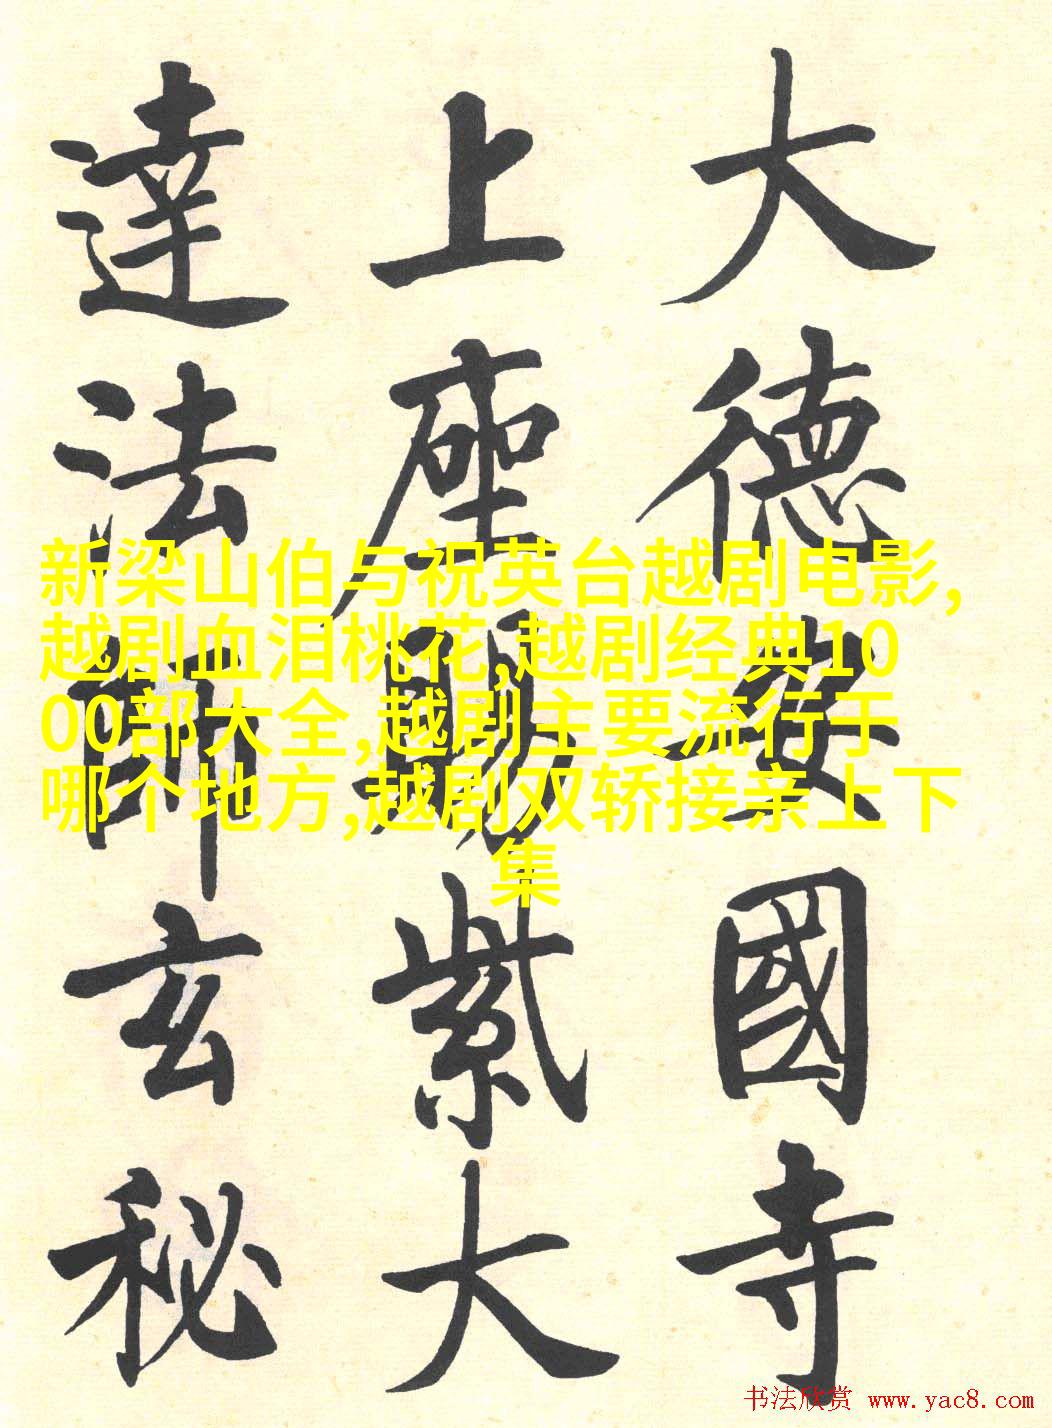 大德安國寺
上座賜紫大
達法師玄秘
新梁山伯与祝英台越剧电影,
越剧血泪桃花,越剧经典10
00部大全,越剧主要流行于
哪个地方,越剧双轿接亲上下
集
书法欣赏 www.yac8.com